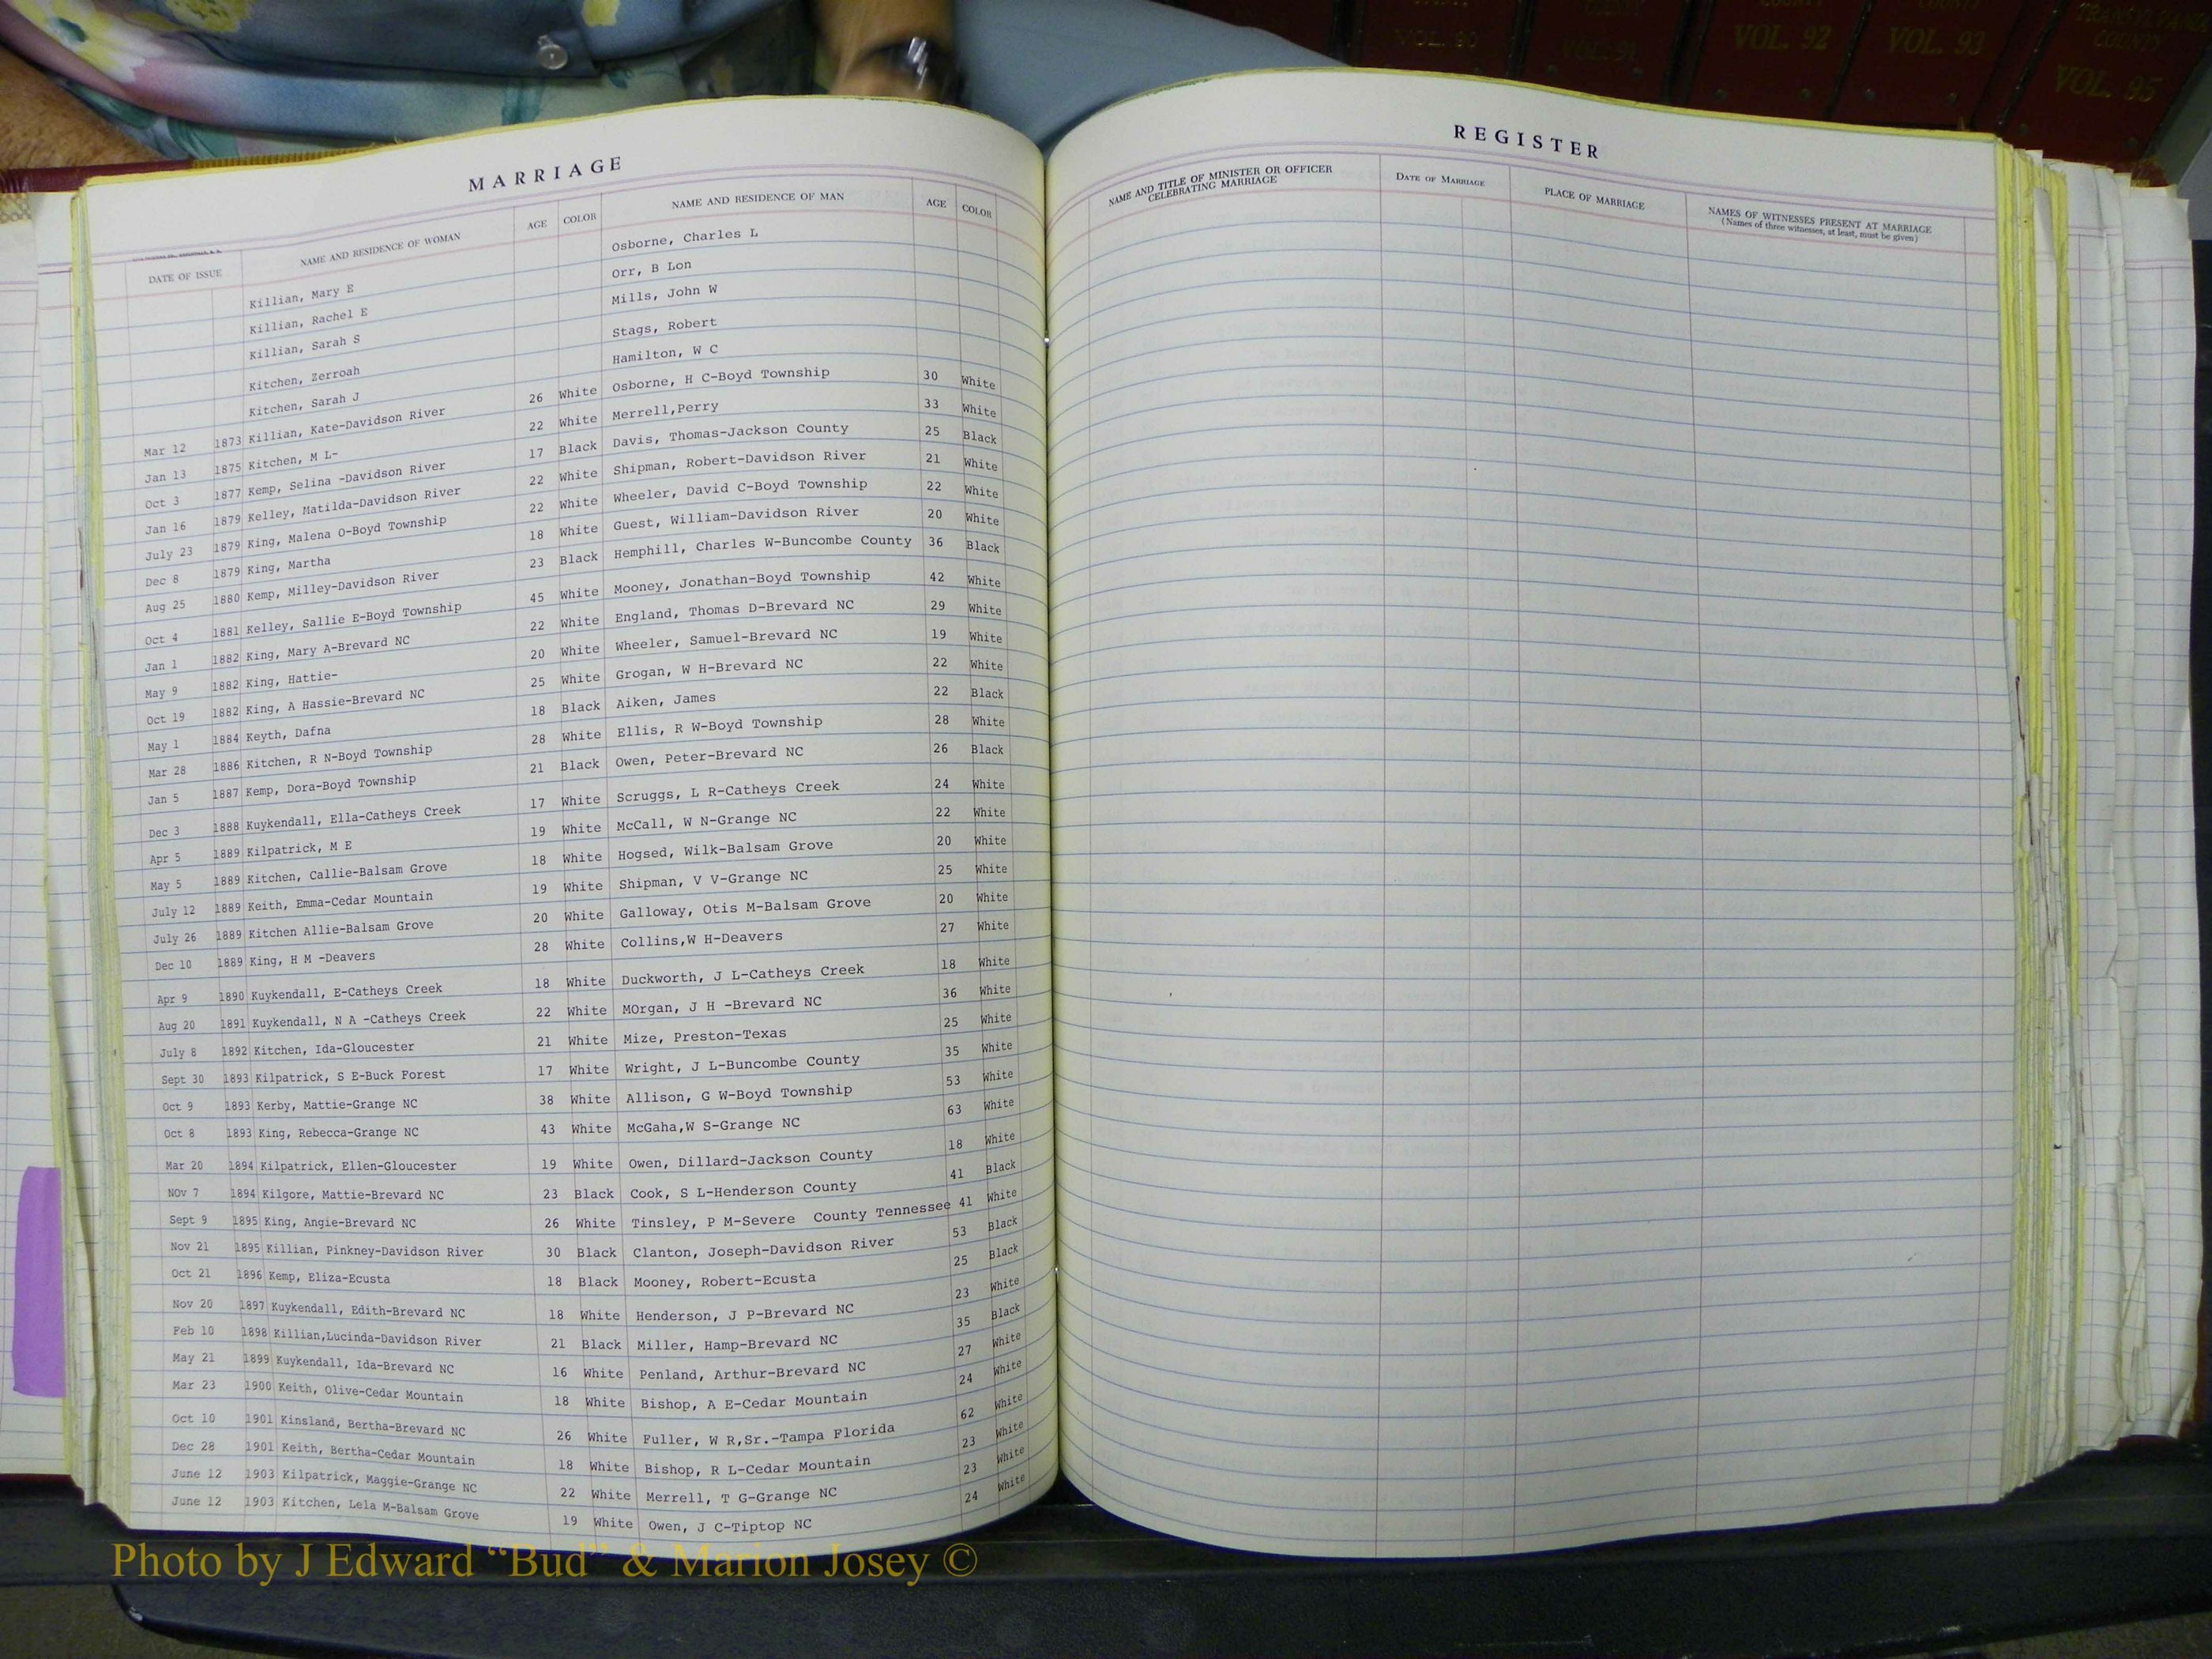 COUNTY
VOL. 90
COUNTY
VOL. 91
COUNTY
VOL. 92
COUNTY
VOL. 93
TRANSYLVANIA
COUNTY
VOL. 95
MARRIAGE
DATE OF ISSUE NAME AND RESIDENCE OF WOMAN AGE COLOR NAME AND RESIDENCE OF MAN AGE COLOR
Killian, Mary E Osborne, Charles L
Killian, Rachel E Orr, B Lon
Killian, Sarah S Mills, John W
Kitchen, Zerroah Stags, Robert
Kitchen, Sarah J Hamilton, W C
Mar 12 1873 Killian, Kate-Davidson River 26 White Osborne, H C-Boyd Township 30 White
Jan 13 1875 Kitchen, M L- 22 White Merrell,Perry 33 White
Oct 3 1877 Kemp, Selina -Davidson River 17 Black Davis, Thomas-Jackson County 25 Black
Jan 16 1879 Kelley, Matilda-Davidson River 22 White Shipman, Robert-Davidson River 21 White
July 23 1879 King, Malena O-Boyd Township 22 White Wheeler, David C-Boyd Township 22 White
Dec 8 1879 King, Martha 18 White Guest, William-Davidson River 20 White
Aug 25 1880 Kemp, Milley-Davidson River 23 Black Hemphill, Charles W-Buncombe County 36 Black
Oct 4 1881 Kelley, Sallie E-Boyd Township 45 White Mooney, Jonathan-Boyd Township 42 White
Jan 1 1882 King, Mary A-Brevard NC 22 White England, Thomas D-Brevard NC 29 White
May 9 1882 King, Hattie- 20 White Wheeler, Samuel-Brevard NC 19 White
Oct 19 1882 King, A Hassie-Brevard NC 25 White Grogan, W H-Brevard NC 22 White
May 1 1884 Keyth, Dafna 18 Black Aiken, James 22 Black
Mar 28 1886 Kitchen, R N-Boyd Township 28 White Ellis, R W-Boyd Township 28 White
Jan 5 1887 Kemp, Dora-Boyd Township 21 Black Owen, Peter-Brevard NC 26 Black
Dec 3 1888 Kuykendall, Ella-Catheys Creek 17 White Scruggs, L R-Catheys Creek 24 White
Apr 5 1889 Kilpatrick, M E 19 White McCall, W N-Grange NC 22 White
May 5 1889 Kitchen, Callie-Balsam Grove 18 White Hogsed, Wilk-Balsam Grove 20 White
July 12 1889 Keith, Emma-Cedar Mountain 19 White Shipman, V V-Grange NC 25 White
July 26 1889 Kitchen Allie-Balsam Grove 20 White Galloway, Otis M-Balsam Grove 20 White
Dec 10 1889 King, H M -Deavers 28 White Collins,W H-Deavers 27 White
Apr 9 1890 Kuykendall, E-Catheys Creek 18 White Duckworth, J L-Catheys Creek 18 White
Aug 20 1891 Kuykendall, N A -Catheys Creek 22 White MOrgan, J H -Brevard NC 36 White
July 8 1892 Kitchen, Ida-Gloucester 21 White Mize, Preston-Texas 25 White
Sept 30 1893 Kilpatrick, S E-Buck Forest 17 White Wright, J L-Buncombe County 35 White
Oct 9 1893 Kerby, Mattie-Grange NC 38 White Allison, G W-Boyd Township 53 White
Oct 8 1893 King, Rebecca-Grange NC 43 White McGaha,W S-Grange NC 63 White
Mar 20 1894 Kilpatrick, Ellen-Gloucester 19 White Owen, Dillard-Jackson County 18 White
Nov 7 1894 Kilgore, Mattie-Brevard NC 23 Black Cook, S L-Henderson County 41 Black
Sept 9 1895 King, Angie-Brevard NC 26 White Tinsley, P M-Severe County Tennessee 41 White
Nov 21 1895 Killian, Pinkney-Davidson River 30 Black Clanton, Joseph-Davidson River 53 Black
Oct 21 1896 Kemp, Eliza-Ecusta 18 Black Mooney, Robert-Ecusta 25 Black
Nov 20 1897 Kuykendall, Edith-Brevard NC 18 White Henderson, J P-Brevard NC 23 White
Feb 10 1898 Killian,Lucinda-Davidson River 21 Black Miller, Hamp-Brevard NC 35 Black
May 21 1899 Kuykendall, Ida-Brevard NC 16 White Penland, Arthur-Brevard NC 27 White
Mar 23 1900 Keith, Olive-Cedar Mountain 18 White Bishop, A E-Cedar Mountain 24 White
Oct 10 1901 Kinsland, Bertha-Brevard NC 26 White Fuller, W R,Sr.-Tampa Florida 62 White
Dec 28 1901 Keith, Bertha-Cedar Mountain 18 White Bishop, R L-Cedar Mountain 23 White
June 12 1903 Kilpatrick, Maggie-Grange NC 22 White Merrell, T G-Grange NC 23 White
June 12 1903 Kitchen, Lela M-Balsam Grove 19 White Owen, J C-Tiptop NC 24 White
REGISTER
NAME AND TITLE OF MINISTER OR OFFICER CELEBRATING MARRIAGE DATE OF MARRIAGE PLACE OF MARRIAGE NAMES OF WITNESSES PRESENT AT MARRIAGE
(Names of three witnesses, at least, must be given)
Photo by J Edward “Bud” & Marion Josey ©